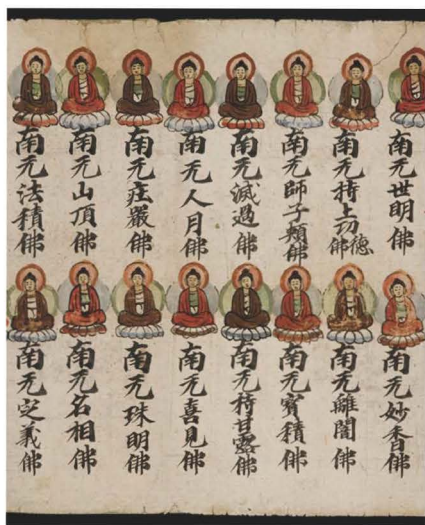 南无世明佛
南无持上功德佛
南无師子頰佛
南无滅過佛
南无人月佛
南无莊嚴佛
南无山頂佛
南无法積佛
南无妙香佛
南无離闇佛
南无寶積佛
南无持甘露佛
南无喜見佛
南无珠明佛
南无名相佛
南无定義佛